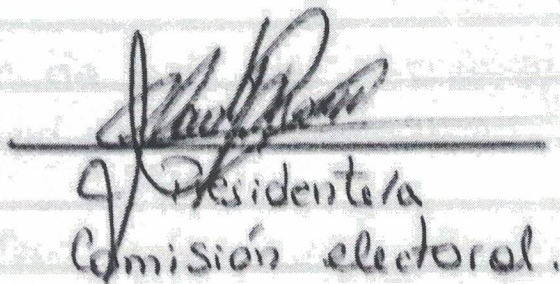 Presidente/a
Comisión electoral.